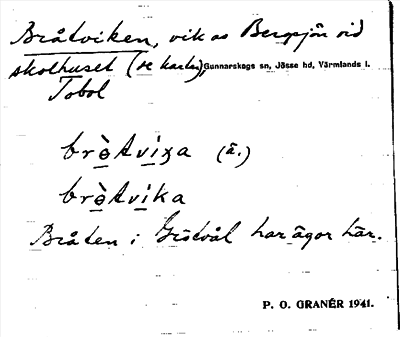 Bråtviken, vik av Bergsjön vid
skolhuset (se kartan), Gunnarskogs sn, Jösse hd, Värmlands l.
Tobol
brə̀tviʒa (ä.)
brə̀tvika
Bråten i Gistvål har ägor här.
P. O. GRANÉR 1941.